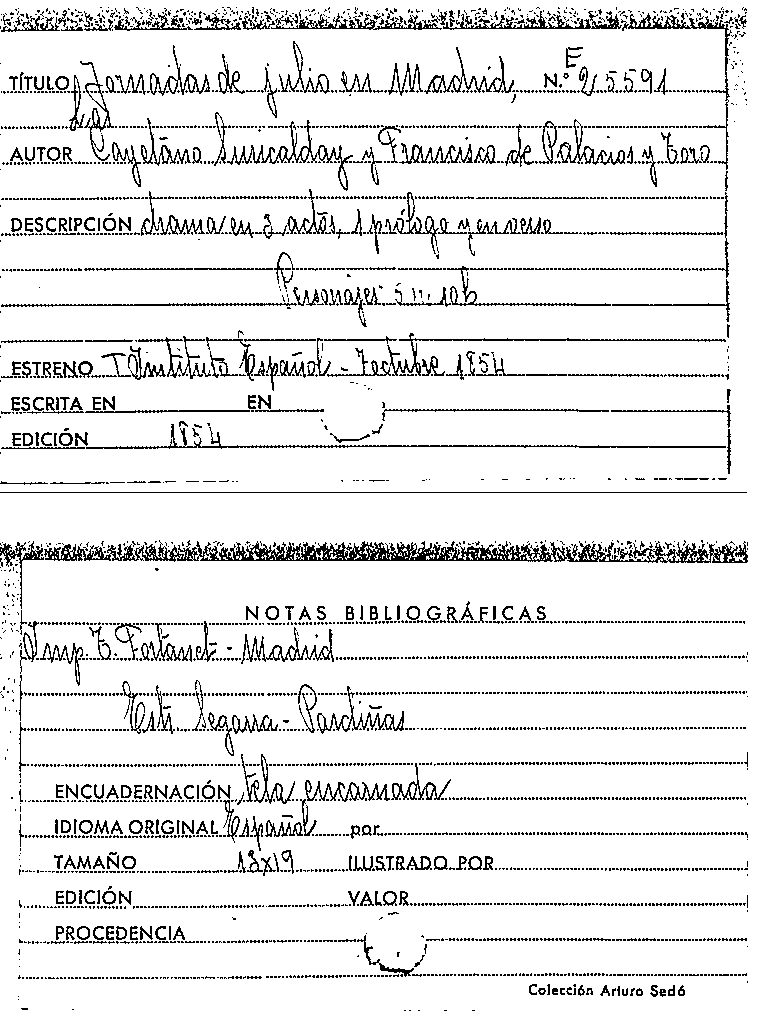 TÍTULO Jornadas de julio en Madrid, N.º E 25591
Las
AUTOR Cayetano Suricalday y Francisco de Palacios y Toro
DESCRIPCIÓN drama en 3 actos, 1 prólogo y en verso
Personajes 5 m. 10h
ESTRENO T Instituto Español - 7 octubre 1854
ESCRITA EN EN
EDICIÓN 1854
NOTAS BIBLIOGRÁFICAS
Imp. T. Fortanet - Madrid
Estr. Segarra - Pardiñas
ENCUADERNACIÓN tela encarnada
IDIOMA ORIGINAL Español por
TAMAÑO 13x19 ILUSTRADO POR
EDICIÓN VALOR
PROCEDENCIA
Colección Arturo Sedó